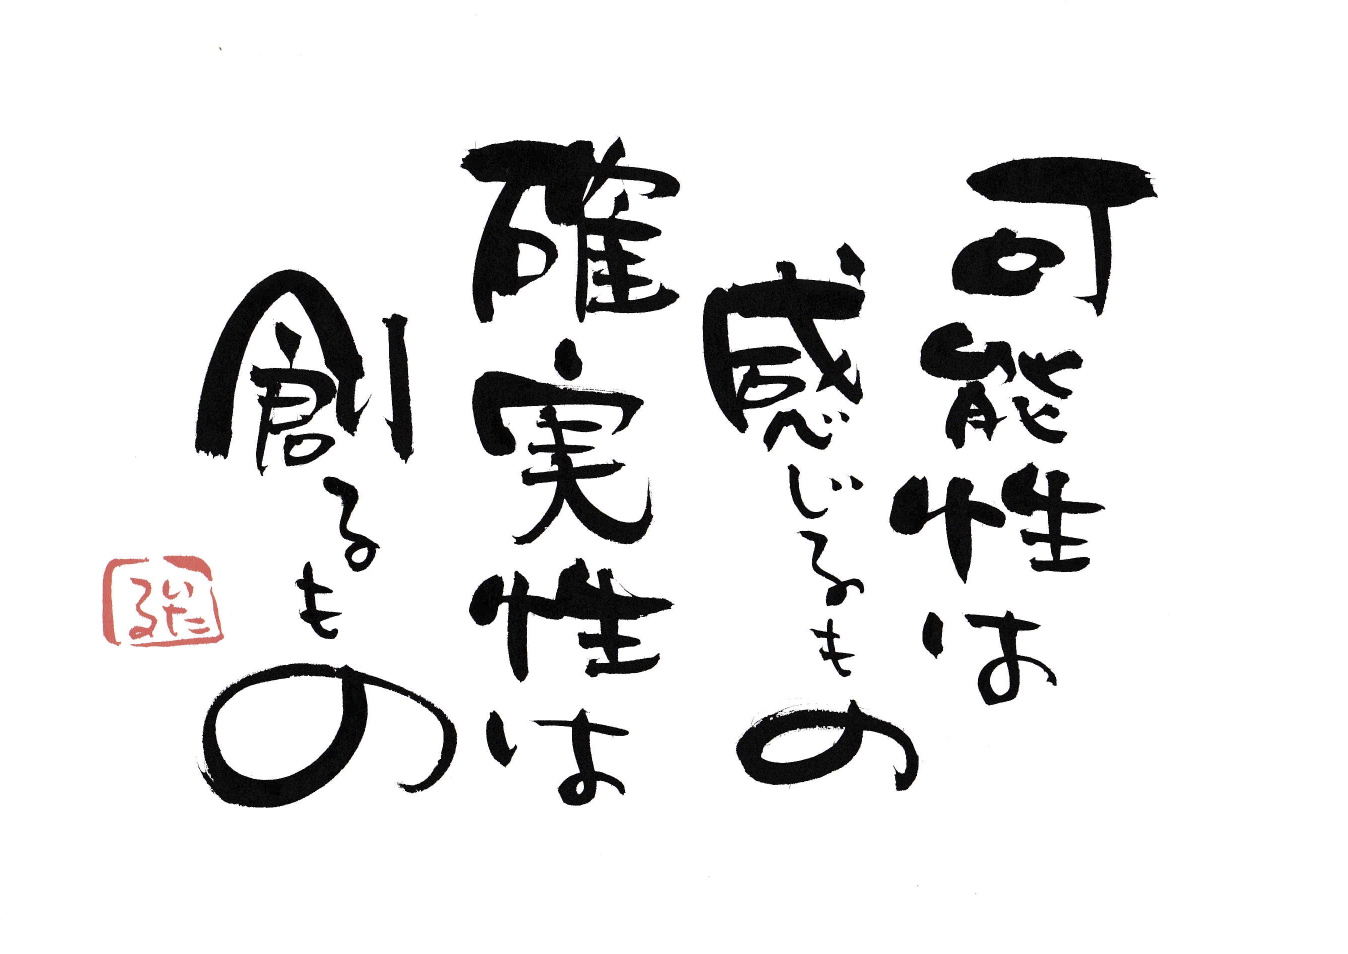 可能性は
感じるもの
確実性は
創るもの
いたる